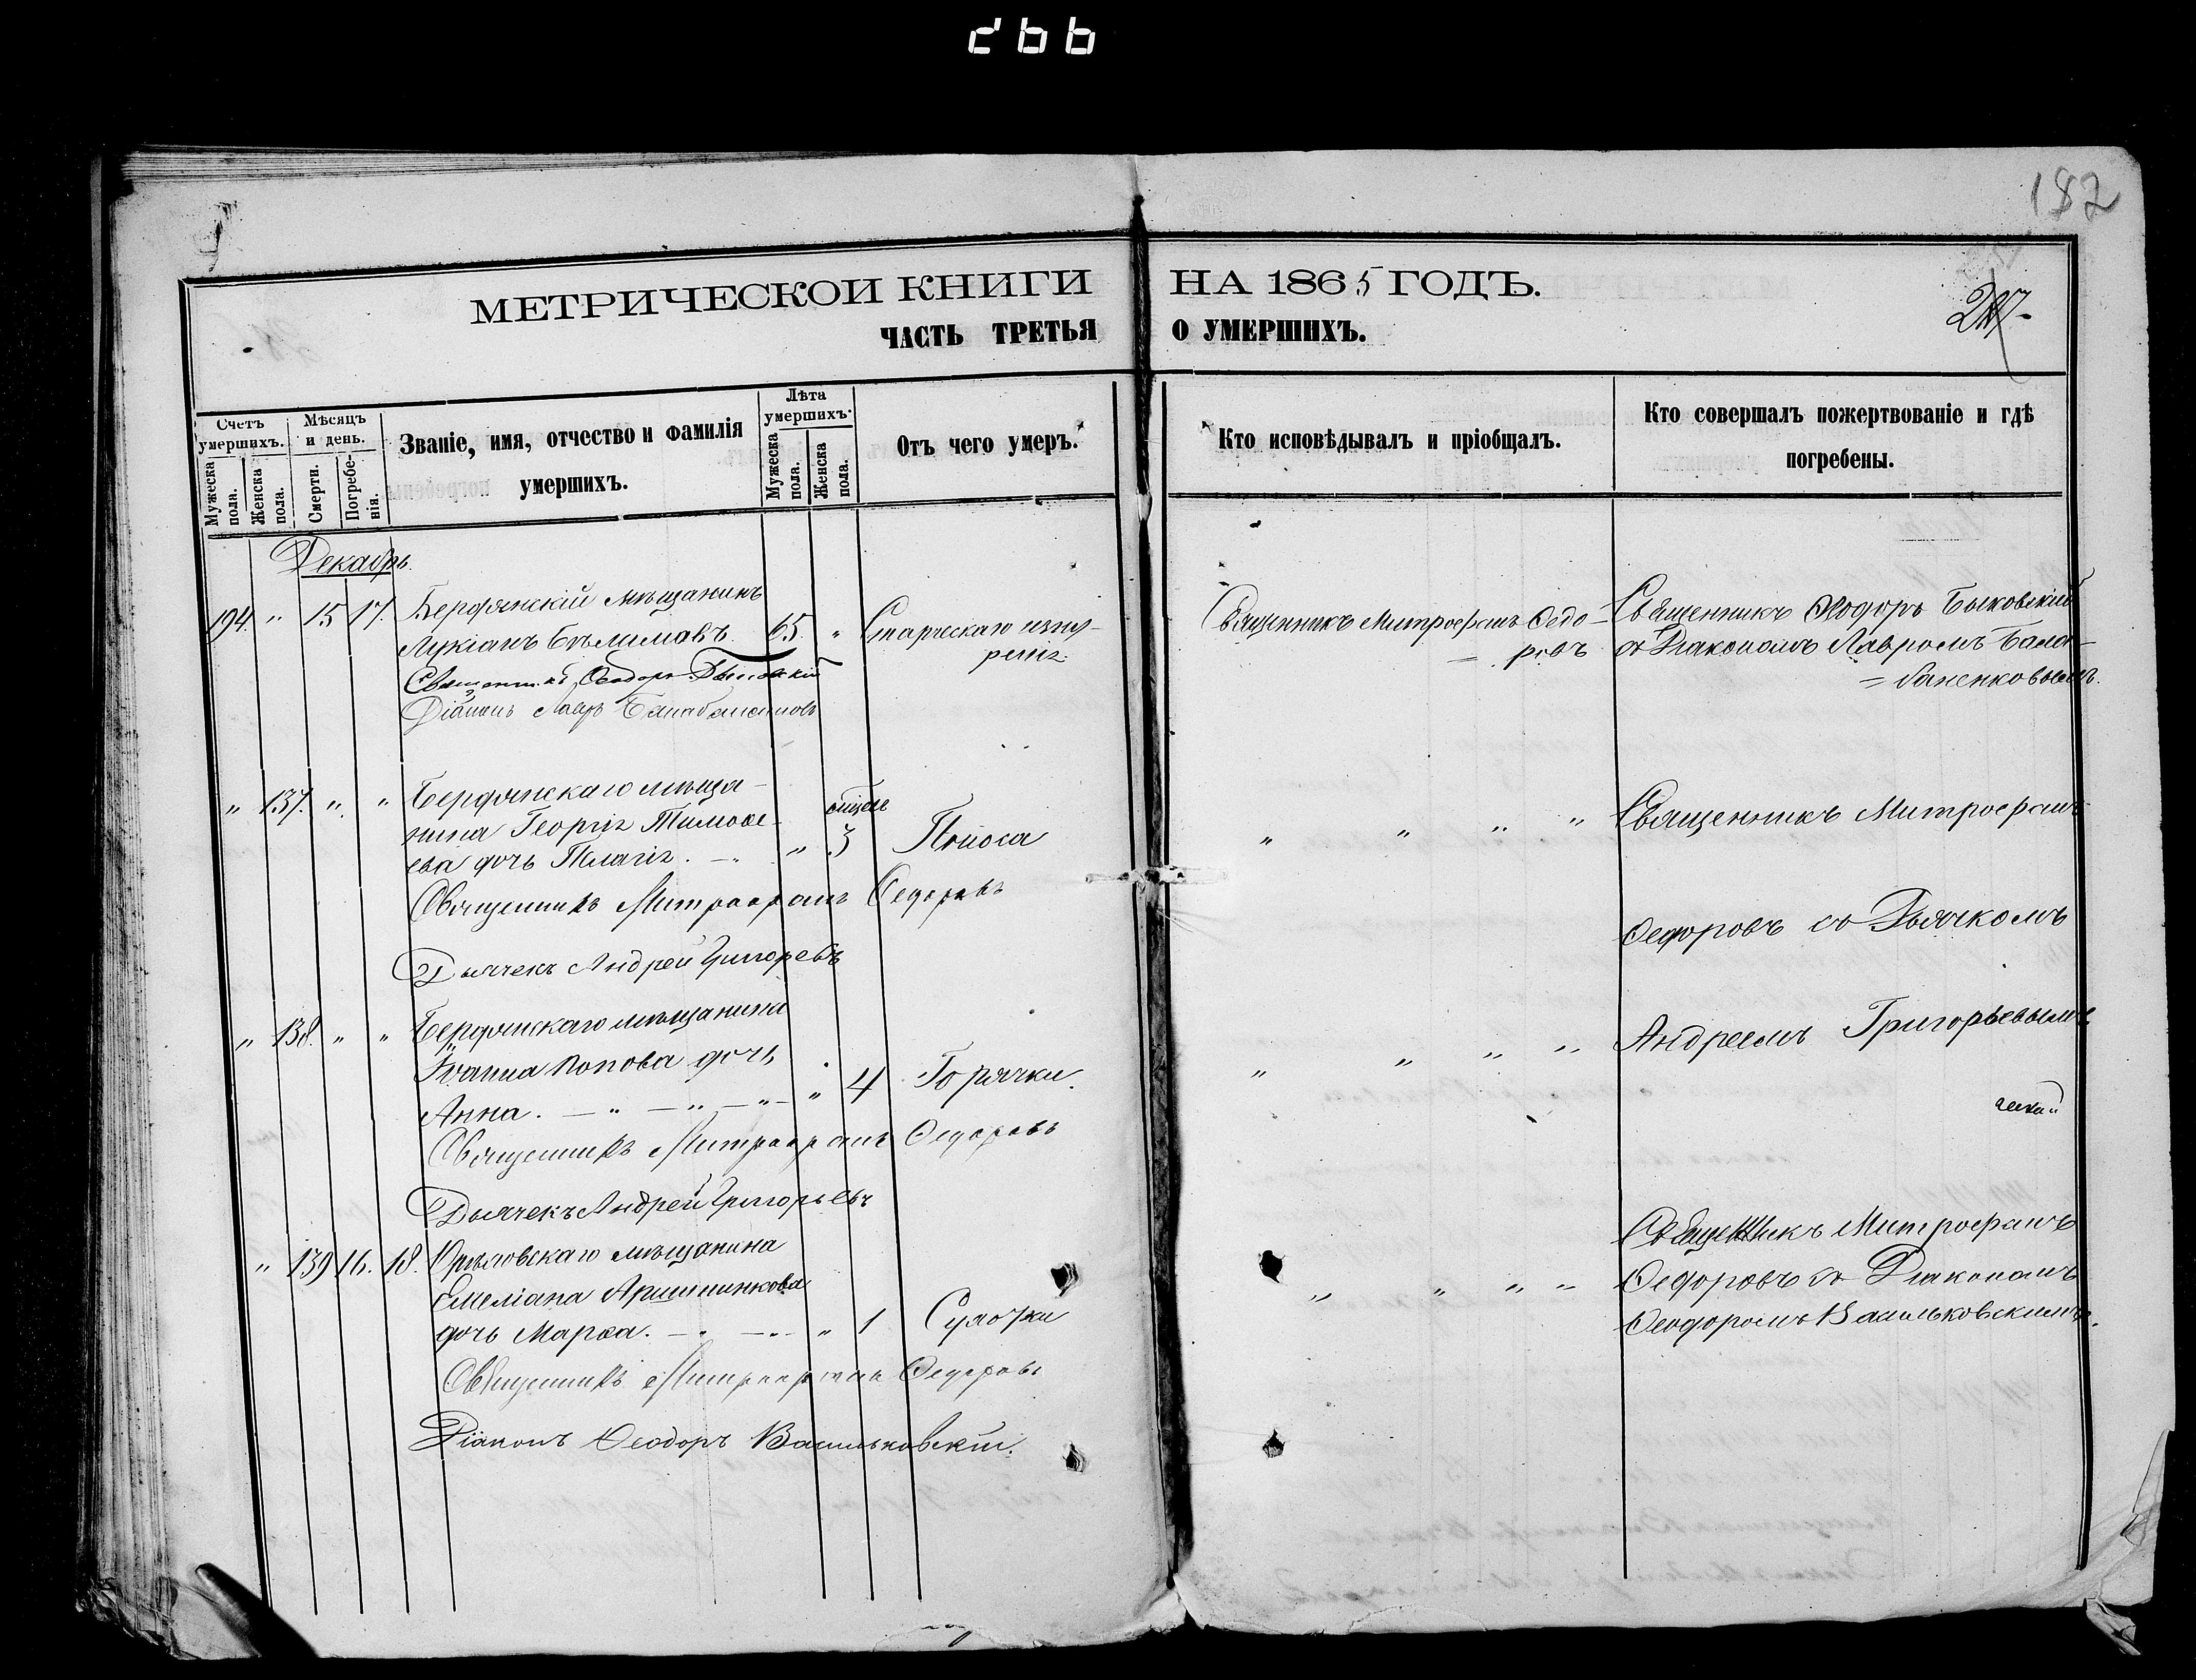 266
182
МЕТРИЧЕСКОЙ КНИГИ НА 1865 ГОДЪ.
ЧАСТЬ ТРЕТЬЯ О УМЕРШИХЪ.
Счетъ умершихъ.
Мужеска пола.
Женска пола.
Мѣсяцъ и день.
Смерти.
Погребенія.
Званіе, имя, отчество и фамилія
умершихъ.
Лѣта
умершихъ.
Мужеска пола.
Женска пола.
Отъ чего умеръ.
Кто исповѣдывалъ и пріобщалъ.
Кто совершалъ пожертвованіе и гдѣ
погребены.
Декабрь.
194. " 15 17. Бердянскій мѣщанинъ
Лукіанъ 65. " Старческаго изну-
ренія
Священникъ Митрофанъ Ѳедо-
= ровъ
Священникъ Ѳеодоръ Быковскій
съ Діакономъ Лавромъ Бала-
= баненковымъ.
Священникъ Ѳеодоръ Быковскій
Діаконъ Лавръ Балабаненковъ
" 137. " " Бердянскаго мѣща-
нина Георгія Тимоѳе-
ева дочь Пелагія. " мѣсяц 3 Поноса
" " " " Священникъ Митрофанъ
Священникъ Митрофанъ Ѳедоровъ
Ѳедоровъ съ Дьячкомъ
Дьячекъ Андрей Григорьевъ
" 138. " " Бердянскаго мѣщанина
Іоанна Попова дочь
Анна. — " — " — " — " 4 Горячки.
" " " " Андреемъ Григорьевымъ
Священникъ Митрофанъ Ѳедоровъ
Дьячекъ Андрей Григорьевъ
" 139 16. 18. Орѣховскаго мѣщанина
Емеліана Аршинникова
дочь Марѳа. — " — " 1 Сухотки
" " " "
Священникъ Митрофанъ
Ѳедоровъ съ Діакономъ
Ѳеодоромъ Васильковскимъ.
Священникъ Митрофанъ Ѳедоровъ
Діаконъ Ѳеодоръ Васильковскій.